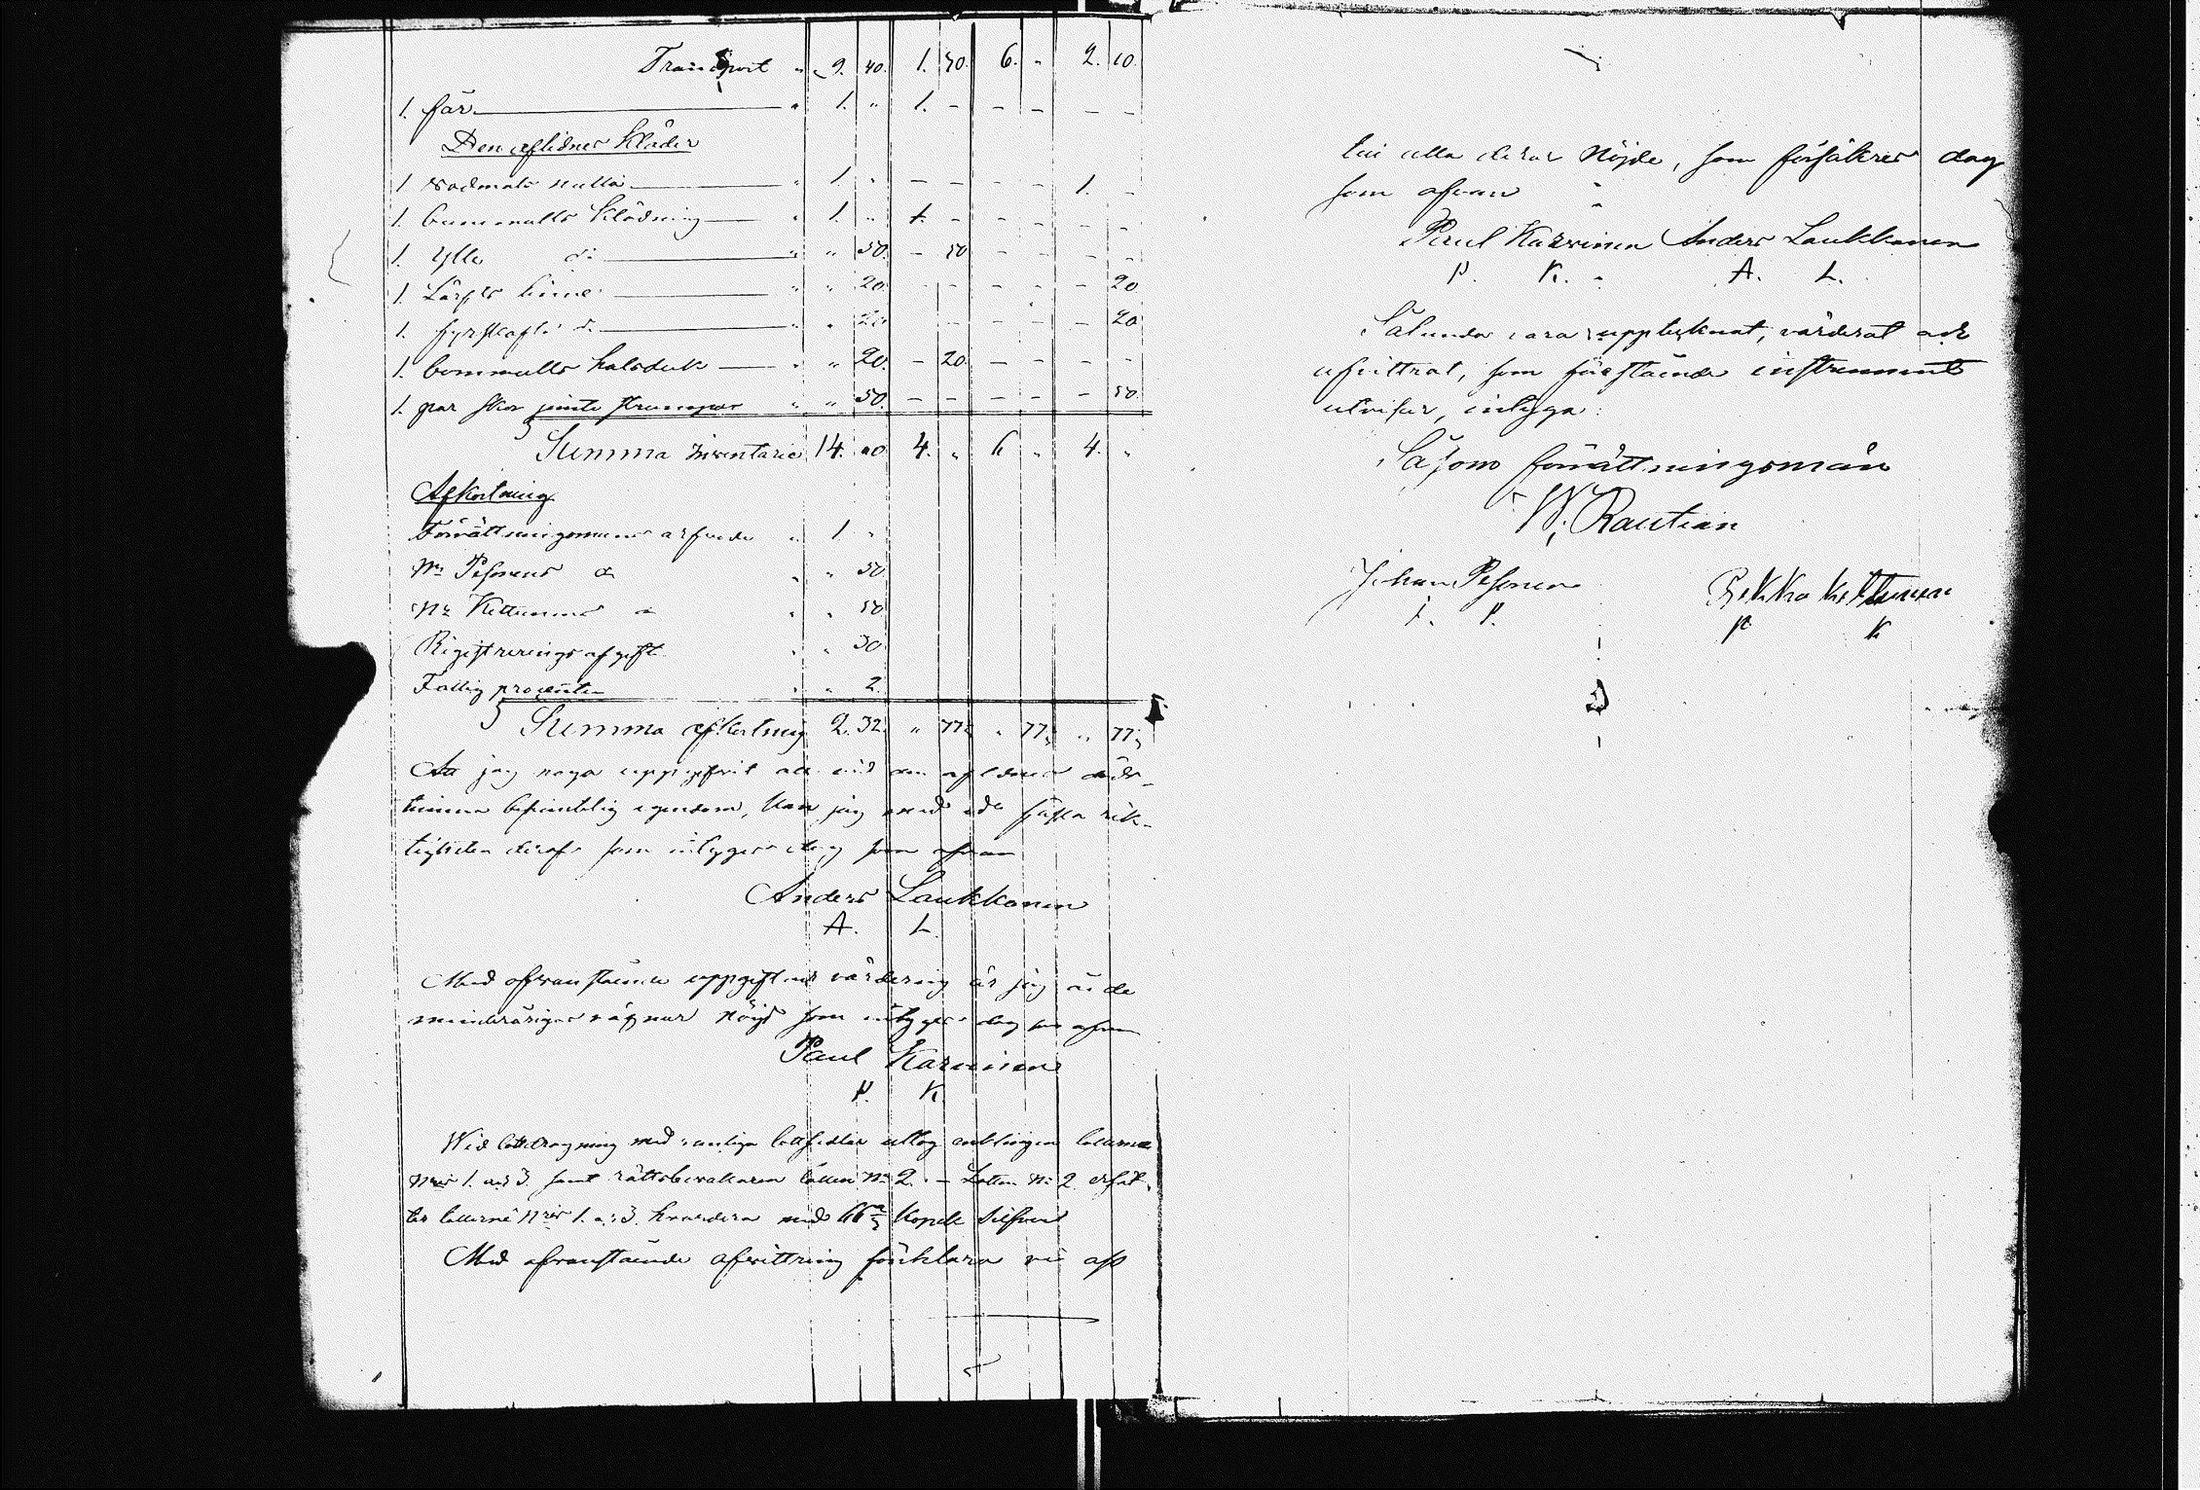 Transport " 9. 40. 1. 30. 6. " 2. 10.
1. får " 1. " 1. - - - - -
Den aflidnes kläder
1 vadmals " 1. " - - - - 1. -
1. bummulls klädning " 1. " 1. - - - - -
1. Ylle d:o " " 50. - 50 - - - -
1. Lärfts " " 20. - - - - - 20
1. fyrskafts d:o " " 20. - - - - - 20
1. bommulls halsduk " " 20. - 20. - - - -
1. par skor jemte strumpor " " 50. - - - - - 50.
Summa Inventarie 14. 40 4. " 6 " 4. "
Afkortning
Förrättningsmans arfvode " 1. "
Pesonens d:o " " 50
Kettunens d:o " " 50
Registreringsafgift " " 30
Fattig procenten " " 2.
Summa afkortning 2. 32. " 77 " 77 " 77
Att jag noga uppgifvit all vid den aflidnes döds-
timma befintlig egendom, kan jag med ed fästa rik-
tigheten deraf som intygas dag som ofvan
Anders Laukkanen
A. L.
Med ofvanstående uppgift och värdering är jag å de
minderårigas vägnar nöjd som intygas dag som ofvan
Paul Karvinen
P. K.
Wid lottdragning med vanliga lottsedlar uttog enklingen lotterna
N:ris 1. och 3. samt rättsbevakaren lotten N:o 2. - Lotten N:o 2 ersät-
ter lotterna N:ris 1. o. 3. hvardera med 66 2/3 kopek Silfver
Med ofvanstående afvittring förklara vi oss
till alla delar Nöjde, som försäkras dag
som ofvan
Paul Karvinen Anders Laukkanen
P. K. A. L.
Sålunda vara upptecknat, värderat och
afvittrat, som förestående instrument
utvisar, intyga:
Såsom förrättningsmän
W. Rautiain
Johan Pesonen Pekka Kettunen
J. P. P K